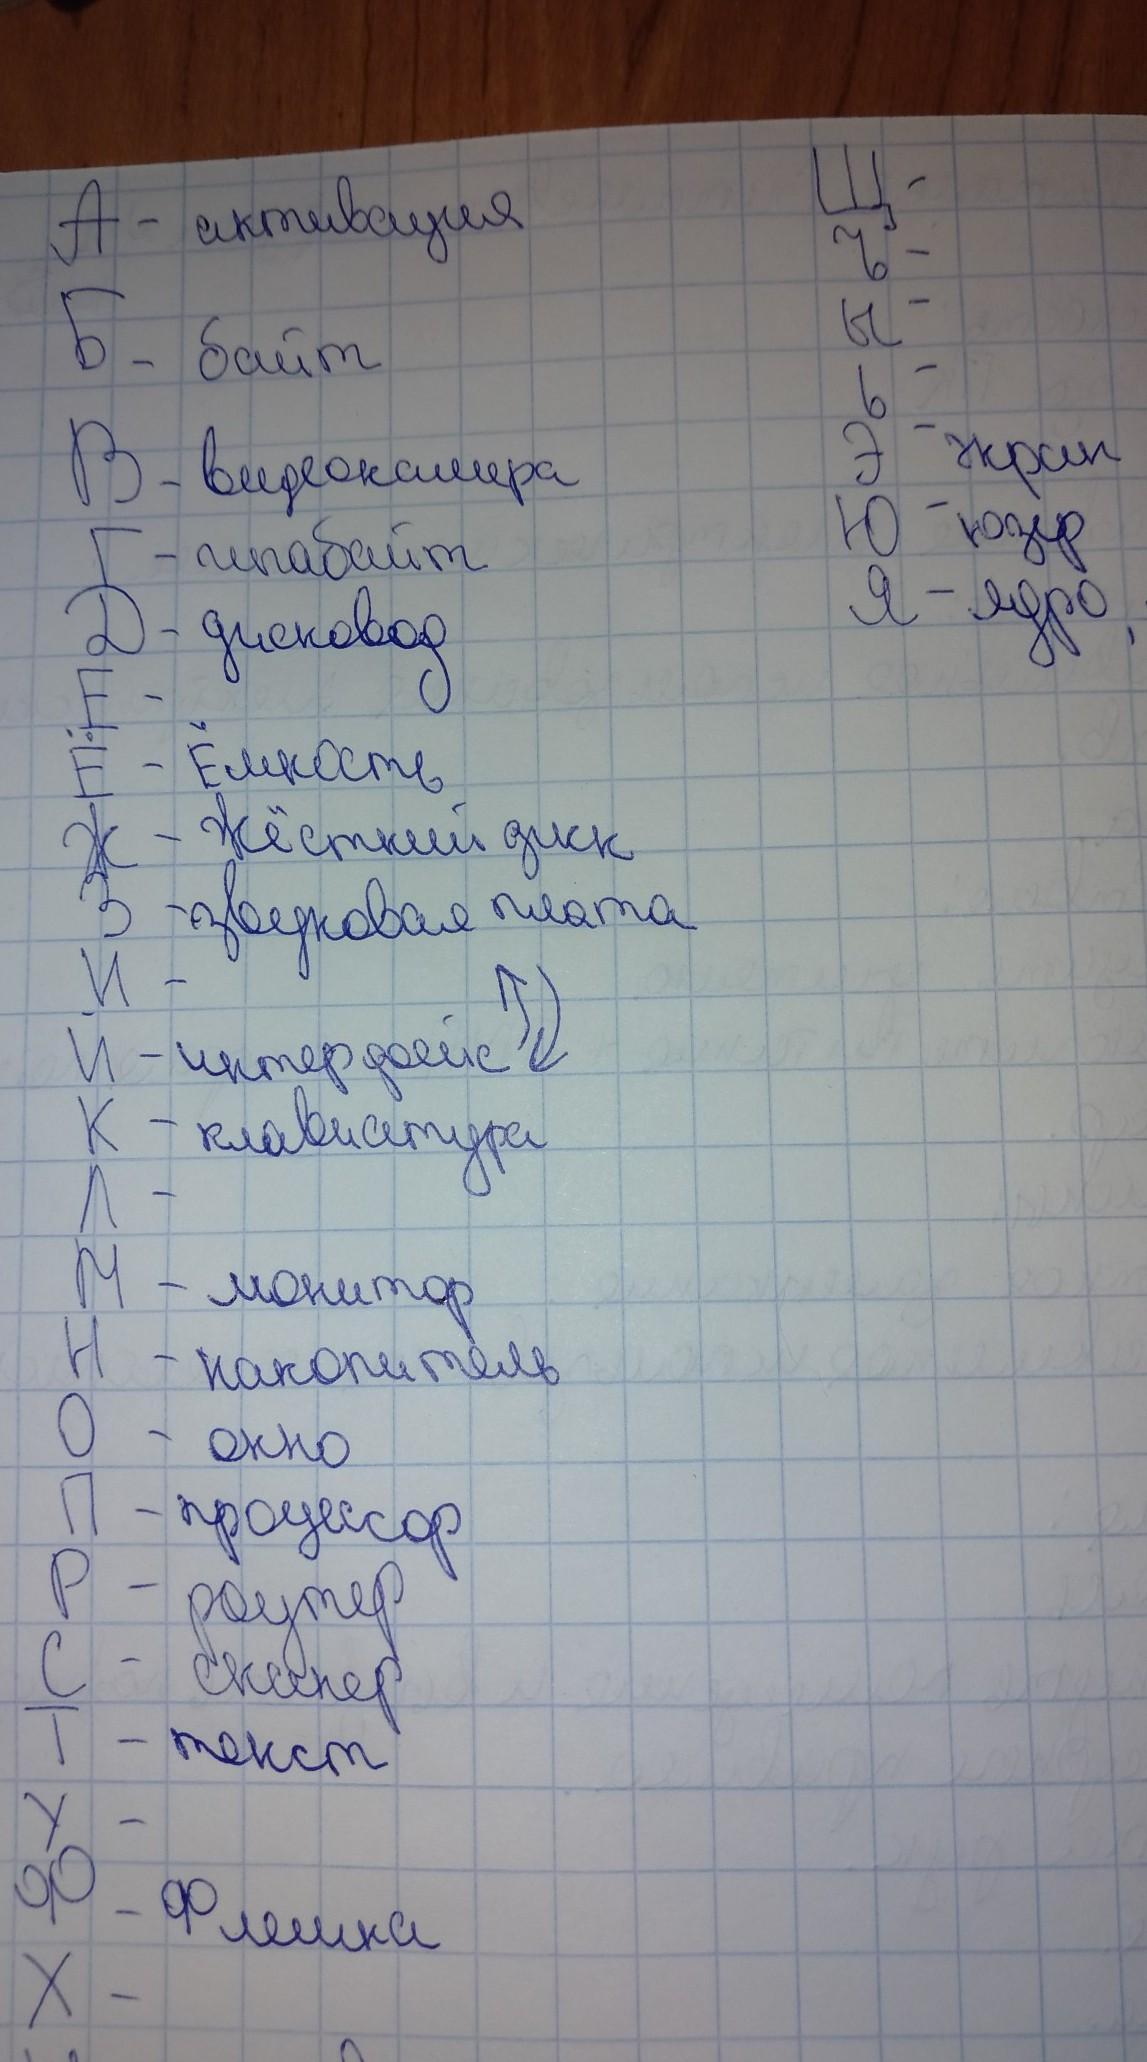 А - активация
Б - байт
В - видеокамера
Г - гигабайт
Д - дисковод
Е -
Ё - Ёмкость
Ж - Жёсткий диск
З - звуковая плата
И -
Й - интерфейс
К - клавиатура
Л -
М - монитор
Н - накопитель
О - окно
П - процессор
Р - роутер
С - сканер
Т - текст
У -
Ф - Флешка
Х -
Щ -
Ъ -
Ы -
Ь -
Э - экран
Ю - юзер
Я - ядро